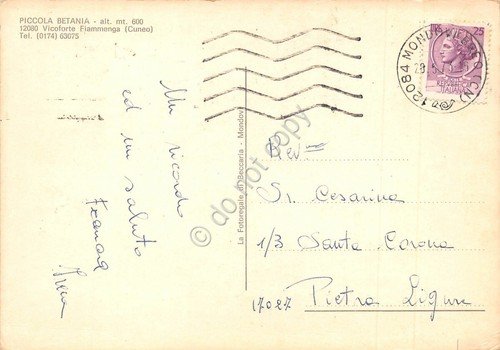 PICCOLA BETANIA - alt. mt. 600
12080 Vicoforte Fiammenga (Cuneo)
Tel. (0174) 63075
Un ricordo
ed un saluto
La Fotoregalo di Beccaria - Mondovì
do not copy
12084 MONDOVI
(CN)
25
ITALIANA
Rev me
Sr. Cesarina
1/3 Santa Corona
17027 Pietra Ligure